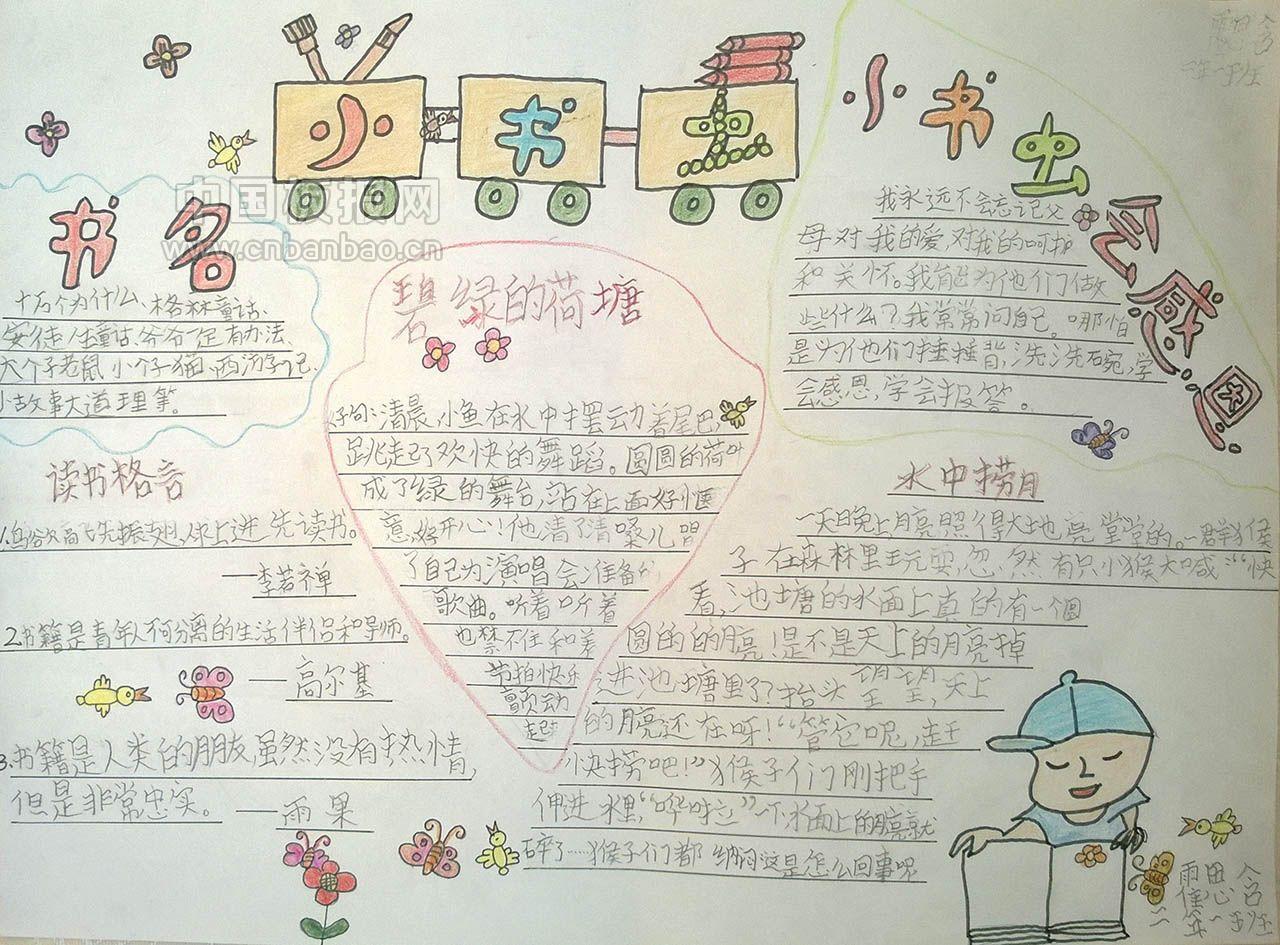 小书虫
中国板报网
www.cnbanbao.cn
书名
十万个为什么、格林童话、
安徒生童话、爷爷一定有办法、
大个子老鼠小个子猫、西游记、
小故事大道理等。
读书格言
1.鸟欲高飞先振翅,人求上进先读书。
——李若禅
2.书籍是青年人不可分离的生活伴侣和导师。
——高尔基
3.书籍是人类的朋友,虽然没有热情,
但是非常忠实。
——雨果
碧绿的荷塘
好句:清晨,小鱼在水中摆动着尾巴,
跳起了欢快的舞蹈。圆圆的荷叶
成了绿的舞台,站在上面好惬
意,好开心!他清了清嗓儿唱
了自己为演唱会准备的
歌曲。听着听着
也禁不住和着
节拍快乐
颤动
起来
小书虫
会感恩
我永远不会忘记父
母对我的爱,对我的呵护
和关怀。我能为他们做
些什么?我常常问自己。哪怕
是为他们捶捶背,洗洗碗,学
会感恩,学会报答。
水中捞月
一天晚上月亮照得大地亮堂堂的。一群猴
子在森林里玩耍,忽然有只小猴大喊:“快
看,池塘的水面上真的有一个
圆的的月亮!是不是天上的月亮掉
进池塘里了?抬头望望,天上
的月亮还在呀!“管它呢,赶
快捞吧!”猴子们刚把手
伸进水里,“哗啦”一下,水面上的月亮就
碎了……猴子们都纳闷这是怎么回事呢
二年一班